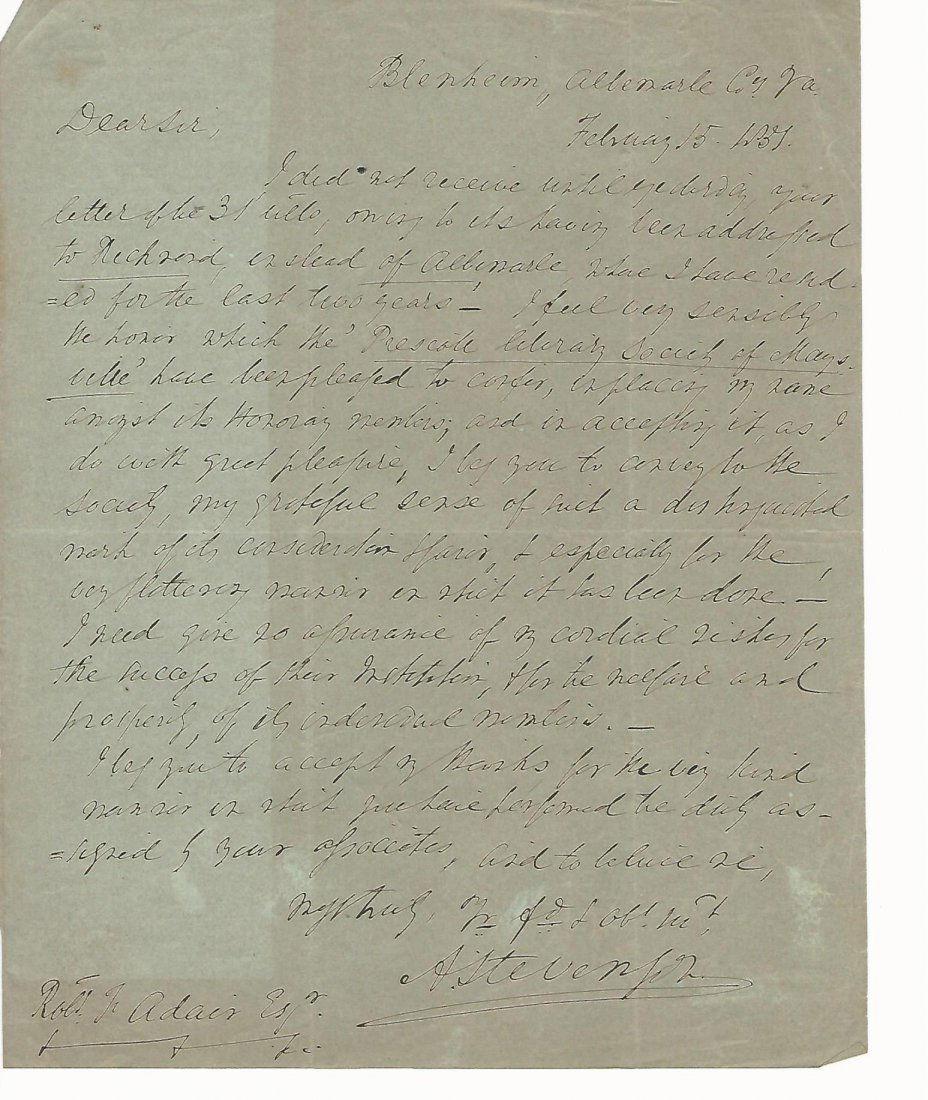 Blenheim, Albemarle Cy Va.
Dear Sir,
February 15. 1851.
I did not receive until yesterday your
letter of the 31 ulto, owing to its having been addressed
to Richmond, instead of Albemarle, where I have resid=
=ed for the last two years— I feel very sensibly
the honor which the 'Prescott literary Society of Mays-
ville' have been pleased to confer, in placing my name
amongst its Honorary members; and in accepting it, as I
do with great pleasure, I beg you to convey to the
Society, my grateful sense of such a distinguished
mark of its consideration & favor, & especially for the
very flattering manner in which it has been done.—
I need give no assurance of my cordial wishes for
the success of their Institution, & for the welfare and
prosperity, of its individual members.—
I beg you to accept my thanks for the very kind
manner in which you have performed the duty as-
=signed by your associates, and to believe me,
most truly, Yr fd & obt svt,
A Stevenson.
Robt. Adair Esqr.